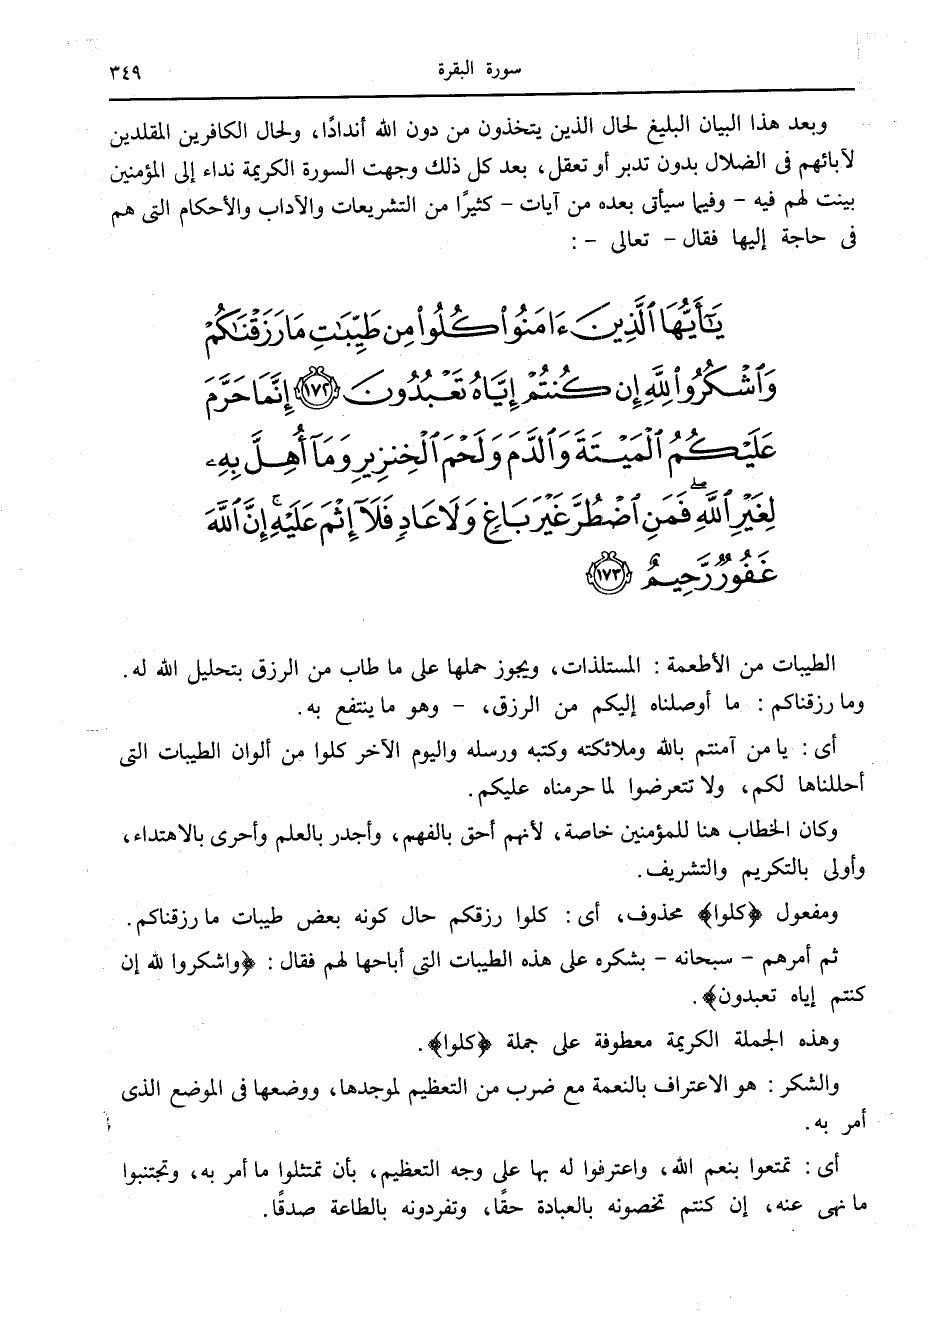 سورة البقرة ٣٤٩
وبعد هذا البيان البليغ لحال الذين يتخذون من دون الله أندادًا، ولحال الكافرين المقلدين
لآبائهم فى الضلال بدون تدبر أو تعقل، بعد كل ذلك وجهت السورة الكريمة نداء إلى المؤمنين
بينت لهم فيه – وفيها سيأتى بعده من آيات – كثيرًا من التشريعات والآداب والأحكام التى هم
فى حاجة إليها فقال – تعالى – :
يَٰٓأَيُّهَا ٱلَّذِينَ ءَامَنُوا۟ كُلُوا۟ مِن طَيِّبَٰتِ مَا رَزَقْنَٰكُمْ
وَٱشْكُرُوا۟ لِلَّهِ إِن كُنتُمْ إِيَّاهُ تَعْبُدُونَ ١٧٢ إِنَّمَا حَرَّمَ
عَلَيْكُمُ ٱلْمَيْتَةَ وَٱلدَّمَ وَلَحْمَ ٱلْخِنزِيرِ وَمَآ أُهِلَّ بِهِۦ
لِغَيْرِ ٱللَّهِۖ فَمَنِ ٱضْطُرَّ غَيْرَ بَاغٍ وَلَا عَادٍ فَلَآ إِثْمَ عَلَيْهِۚ إِنَّ ٱللَّهَ
غَفُورٌ رَّحِيمٌ ١٧٣
الطيبات من الأطعمة : المستلذات، ويجوز حملها على ما طاب من الرزق بتحليل الله له.
وما رزقناكم : ما أوصلناه إليكم من الرزق، – وهو ما ينتفع به.
أى : يا من آمنتم بالله وملائكته وكتبه ورسله واليوم الآخر كلوا من ألوان الطيبات التى
أحللناها لكم، ولا تتعرضوا لما حرمناه عليكم.
وكان الخطاب هنا للمؤمنين خاصة، لأنهم أحق بالفهم، وأجدر بالعلم وأحرى بالاهتداء،
وأولى بالتكريم والتشريف.
ومفعول ﴿كلوا﴾ محذوف، أى : كلوا رزقكم حال كونه بعض طيبات ما رزقناكم.
ثم أمرهم – سبحانه – بشكره على هذه الطيبات التى أباحها لهم فقال : ﴿واشكروا لله إن
كنتم إياه تعبدون﴾.
وهذه الجملة الكريمة معطوفة على جملة ﴿كلوا﴾.
والشكر : هو الاعتراف بالنعمة مع ضرب من التعظيم لموجدها، ووضعها فى الموضع الذى
أمر به.
أى : تمتعوا بنعم الله، واعترفوا له بها على وجه التعظيم، بأن تمتثلوا ما أمر به، وتجتنبوا
ما نهى عنه، إن كنتم تخصونه بالعبادة حقًا، وتفردونه بالطاعة صدقًا.